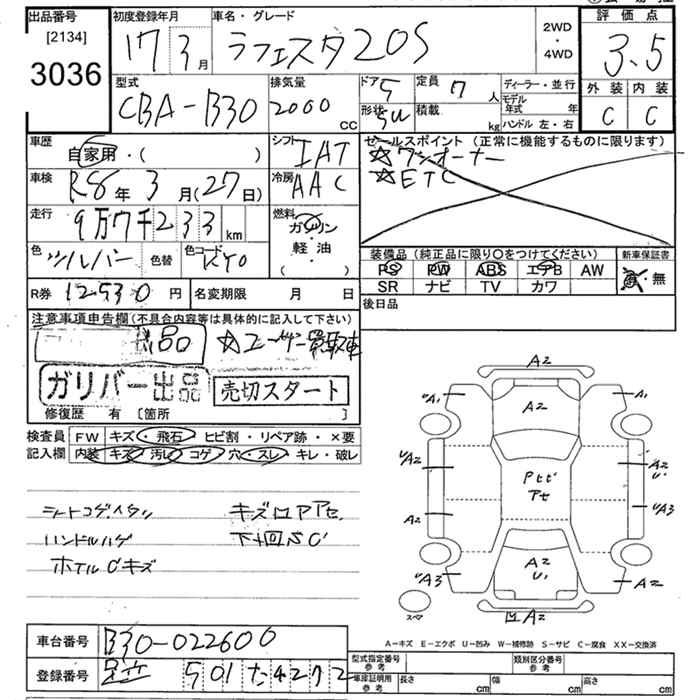 出品番号 [2134] 3036
初度登録年月 17 3月
車名・グレード ラフェスタ20S
2WD ・ 4WD
評価点 3.5
型式 CBA-B30
排気量 2000 cc
ドア 5
形状 5W
定員 7人
積載 kg
ディーラー・並行
モデル年式 年
ハンドル 左・右
外装 C
内装 C
車歴 自家用・( )
シフト IAT
セールスポイント (正常に機能するものに限ります)
☆ワンオーナー
☆ETC
車検 R8年 3月(27日)
冷房 AAC
走行 9万7千233km
燃料 ガソリン 軽・油 ( )
色 シルバー 色替 色コード KY0
装備品 (純正品に限り○をつけてください)
PS PW ABS エアB AW
SR ナビ TV カワ
新車保証書 有・無
R券 12530円 名変期限 月 日
後日品
注意事項申告欄(不具合内容等は具体的に記入して下さい)
品 ☆ユーザー買取車
ガリバー出品 売切スタート
修復歴 有 [箇所 ]
検査員記入欄
FW キズ・飛石・ヒビ割・リペア跡・×要
内装 キズ・汚レ・コゲ・穴・スレ・キレ・破レ
シートコゲ、ヘタリ
ハンドルハゲ
ホイルCキズ
キズロアアセ.
下回S.C
A2
A1 A2 A1
A2 A2 U
A2 A3
A3 A2 U1 A2
A2
スペア
A-キズ E-エクボ U-凹み W-補修跡 S-サビ C-腐食 XX-交換済
車台番号 B30-022600
登録番号 足立 501 た 4272
型式指定番号 参考
類別区分番号 参考
車庫証明用 参考 長さ cm 幅 cm 高さ cm